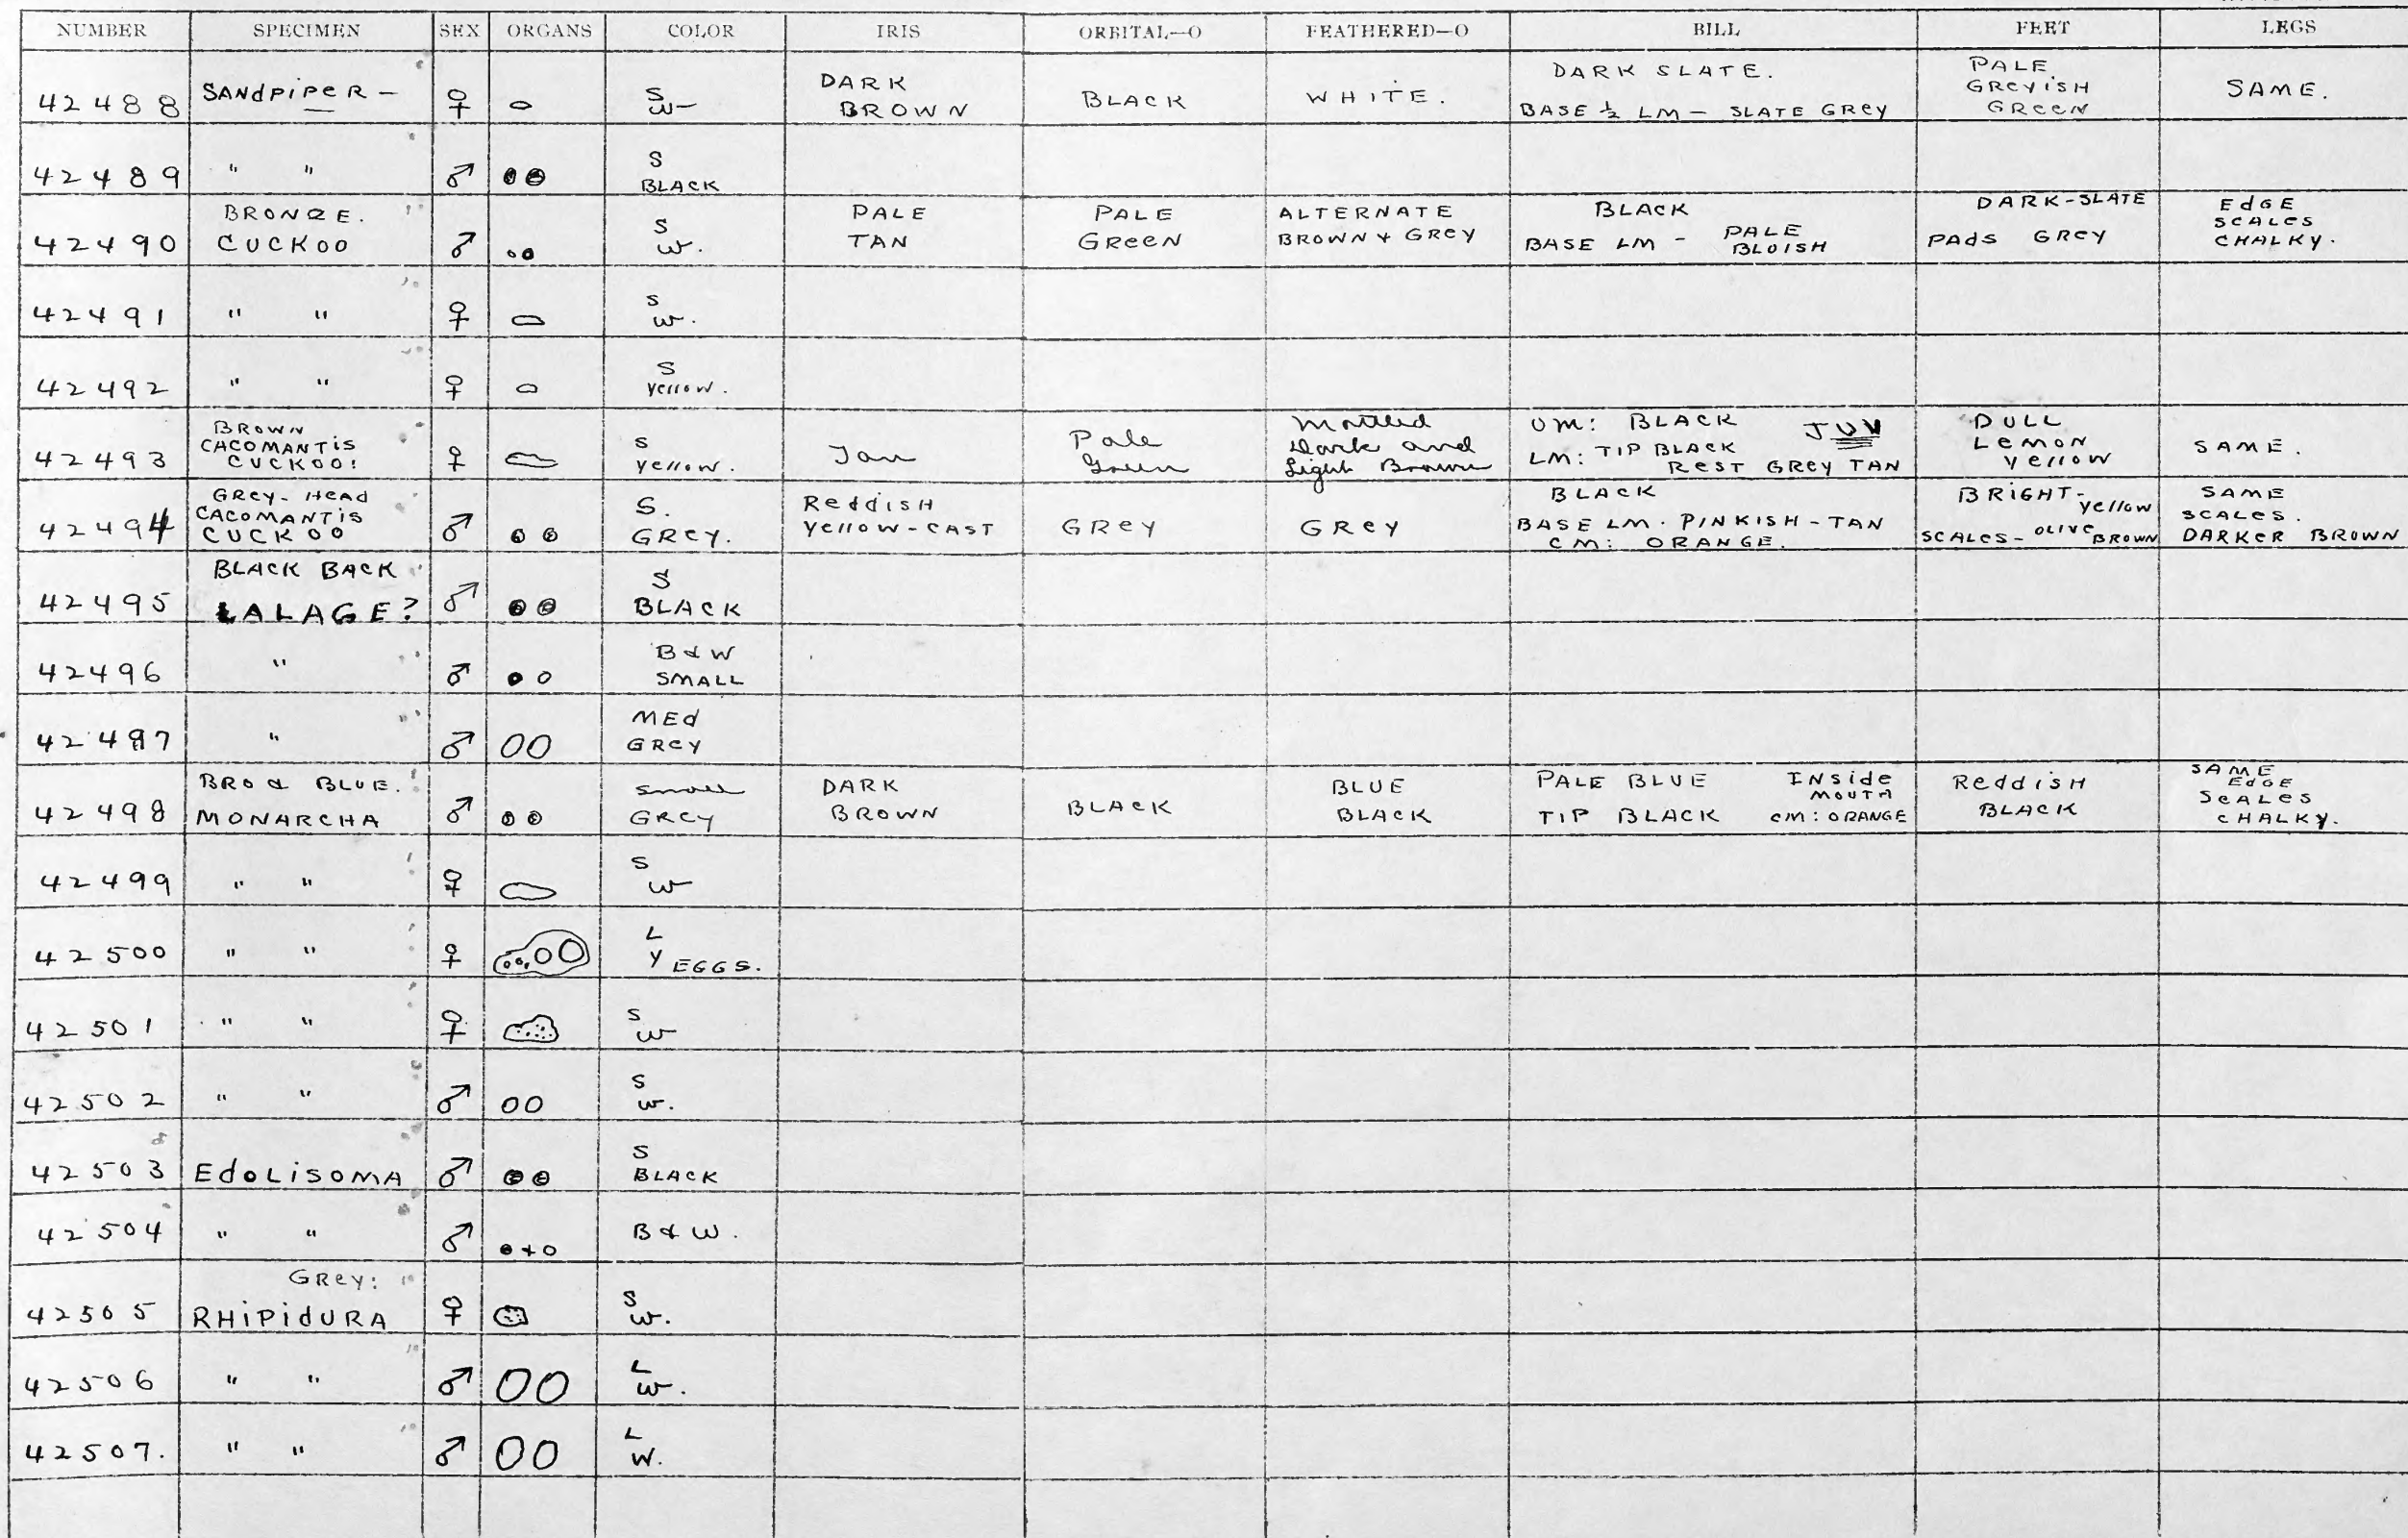 NUMBER SPECIMEN SEX ORGANS COLOR IRIS ORBITAL—O FEATHERED—O BILL FEET LEGS
42488 SANDPIPER — ♀ S W— DARK BROWN BLACK WHITE. DARK SLATE. BASE ½ LM — SLATE GREY PALE GREYISH GREEN SAME.
42489 " " ♂ S BLACK
42490 BRONZE. CUCKOO ♂ S W. PALE TAN PALE GREEN ALTERNATE BROWN & GREY BLACK BASE LM - PALE BLUISH DARK-SLATE PADS GREY EDGE SCALES CHALKY.
42491 " " ♀ S W.
42492 " " ♀ S YELLOW.
42493 BROWN CACOMANTIS CUCKOO! ♀ S YELLOW. Tan Pale Green Mottled Dark and Light Brown UM: BLACK JUV LM: TIP BLACK REST GREY TAN DULL LEMON YELLOW SAME.
42494 GREY-HEAD CACOMANTIS CUCKOO ♂ S. GREY. REDDISH YELLOW-CAST GREY GREY BLACK BASE LM. PINKISH-TAN CM: ORANGE. BRIGHT-YELLOW SCALES-OLIVE BROWN SAME SCALES. DARKER BROWN
42495 BLACK BACK LALAGE? ♂ S BLACK
42496 " ♂ B & W SMALL
42497 " ♂ MED GREY
42498 BRO & BLUE. MONARCHA ♂ small GREY DARK BROWN BLACK BLUE BLACK PALE BLUE TIP BLACK INSIDE MOUTH CM: ORANGE REDDISH BLACK SAME EDGE SCALES CHALKY.
42499 " " ♀ S W
42500 " " ♀ L Y EGGS.
42501 " " ♀ S W
42502 " " ♂ S W.
42503 EDOLISOMA ♂ S BLACK
42504 " " ♂ B & W.
42505 GREY: RHIPIDURA ♀ S W.
42506 " " ♂ L W.
42507. " " ♂ L W.